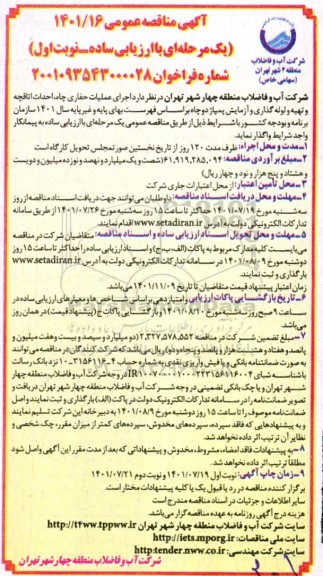 آگهی مناقصه عمومی ۱۴۰۱/۱۶
(یک مرحله‌ای با ارزیابی ساده-نوبت اول)
شماره فراخوان ۲۰۰۱۰۹۳۵۴۳۰۰۰۰۲۸
شرکت آب و فاضلاب
منطقه ۴ شهر تهران
(سهامی خاص)
شرکت آب و فاضلاب منطقه چهار شهر تهران در نظر دارد اجرای عملیات حفاری چاه، احداث اتاقچه
و تهیه و لوله گذاری و آزمایش پمپاژ دو چاه براساس فهرست بهای پایه و غیرپایه سال ۱۴۰۱ سازمان
برنامه و بودجه کشور با شرایط ذیل از طریق مناقصه عمومی یک مرحله‌ای با ارزیابی ساده به پیمانکار
واجد شرایط واگذار نماید.
۱-مدت و محل اجراء: ظرف مدت ۱۲۰ روز از تاریخ نخستین صورتمجلس تحویل کارگاه است
۲-مبلغ برآوردی مناقصه: ۶۱,۹۱۹,۲۸۵,۰۹۴ (شصت و یک میلیارد و نهصد و نوزده میلیون و دویست
و هشتاد و پنج هزار و نود و چهار ریال)
۳-محل تأمین اعتبار: از محل اعتبارات جاری شرکت
۴-مهلت و محل دریافت اسناد مناقصه: داوطلبان می توانند جهت دریافت اسناد مناقصه از روز
سه‌شنبه مورخ ۱۴۰۱/۰۷/۱۹ حداکثر تا ساعت ۱۵ روز سه‌شنبه مورخ ۱۴۰۱/۰۷/۲۶ از طریق سامانه
تدارکات الکترونیکی دولت به آدرس www.setadiran.ir اقدام نمایند.
۵-مهلت و محل تحویل اسناد ارزیابی ساده و اسناد مناقصه: متقاضیان شرکت در مناقصه
می‌بایست کلیه مدارک مربوط به پاکات (الف، ب، ج) و اسناد ارزیابی ساده را حداکثر تا ساعت ۱۵ روز
دوشنبه مورخ ۱۴۰۱/۰۸/۰۹ در سامانه تدارکات الکترونیکی دولت به آدرس www.setadiran.ir
بارگذاری و ثبت نمایند.
زمان اعتبار پیشنهاد قیمت متقاضیان تا تاریخ ۱۴۰۱/۱۱/۰۹ می باشد.
۶-تاریخ بازگشایی پاکات ارزیابی و امتیازدهی براساس شاخص‌ها و معیارهای ارزیابی ساده در
ساعت ۹ صبح روز سه‌شنبه مورخ ۱۴۰۱/۰۸/۱۰ و بازگشایی پاکات ج (پیشنهاد قیمت) در همان روز
می‌باشد.
۷-مبلغ تضمین شرکت در مناقصه ۲,۳۲۷,۵۷۸,۵۵۲ (دو میلیارد و سیصد و بیست و هفت میلیون و
پانصد و هفتاد و هشت هزار و پانصد و پنجاه و دو) ریال می باشد که شرکت کنندگان در مناقصه می توانند
شهر تهران و یا چک بانکی تضمینی در وجه شرکت آب و فاضلاب منطقه چهار شهر تهران دریافت و
تصویر ضمانت‌نامه را در سامانه تدارکات الکترونیک دولت در پاکت (الف) بارگذاری و ثبت نمایند و اصل
ضمانت‌نامه موصوف را تا ساعت ۱۵ روز دوشنبه مورخ ۱۴۰۱/۰۸/۹ به دبیرخانه این شرکت تسلیم نمایند
و به پیشنهادهایی که فاقد سپرده، سپرده‌های مخدوش، سپرده‌های کمتر از میزان مقرر، چک شخصی و
نظایر آن ترتیب اثر داده نخواهد شد.
۸-به پیشنهادات فاقد امضاء، مشروط، مخدوش و پیشنهاداتی که بعد از مدت مقرر این آگهی واصل شود
مطلقا ترتیب اثر داده نخواهد شد.
۹-زمان چاپ آگهی: نوبت اول ۱۴۰۱/۰۷/۱۹ و نوبت دوم ۱۴۰۱/۰۷/۲۱
برگزار کننده مناقصه در رد یا قبول یک یا کلیه پیشنهادات مختار است.
سایر اطلاعات و جزئیات در اسناد مناقصه مندرج است
هزینه درج آگهی روزنامه به عهده مناقصه گزار می‌باشد.
سایت شرکت آب و فاضلاب منطقه چهار شهر تهران http://t4ww.tppww.ir
سایت ملی مناقصات: http://iets.mporg.ir
سایت شرکت مهندسی: http:tender.nww.co.ir
شرکت آب و فاضلاب منطقه چهار شهر تهران